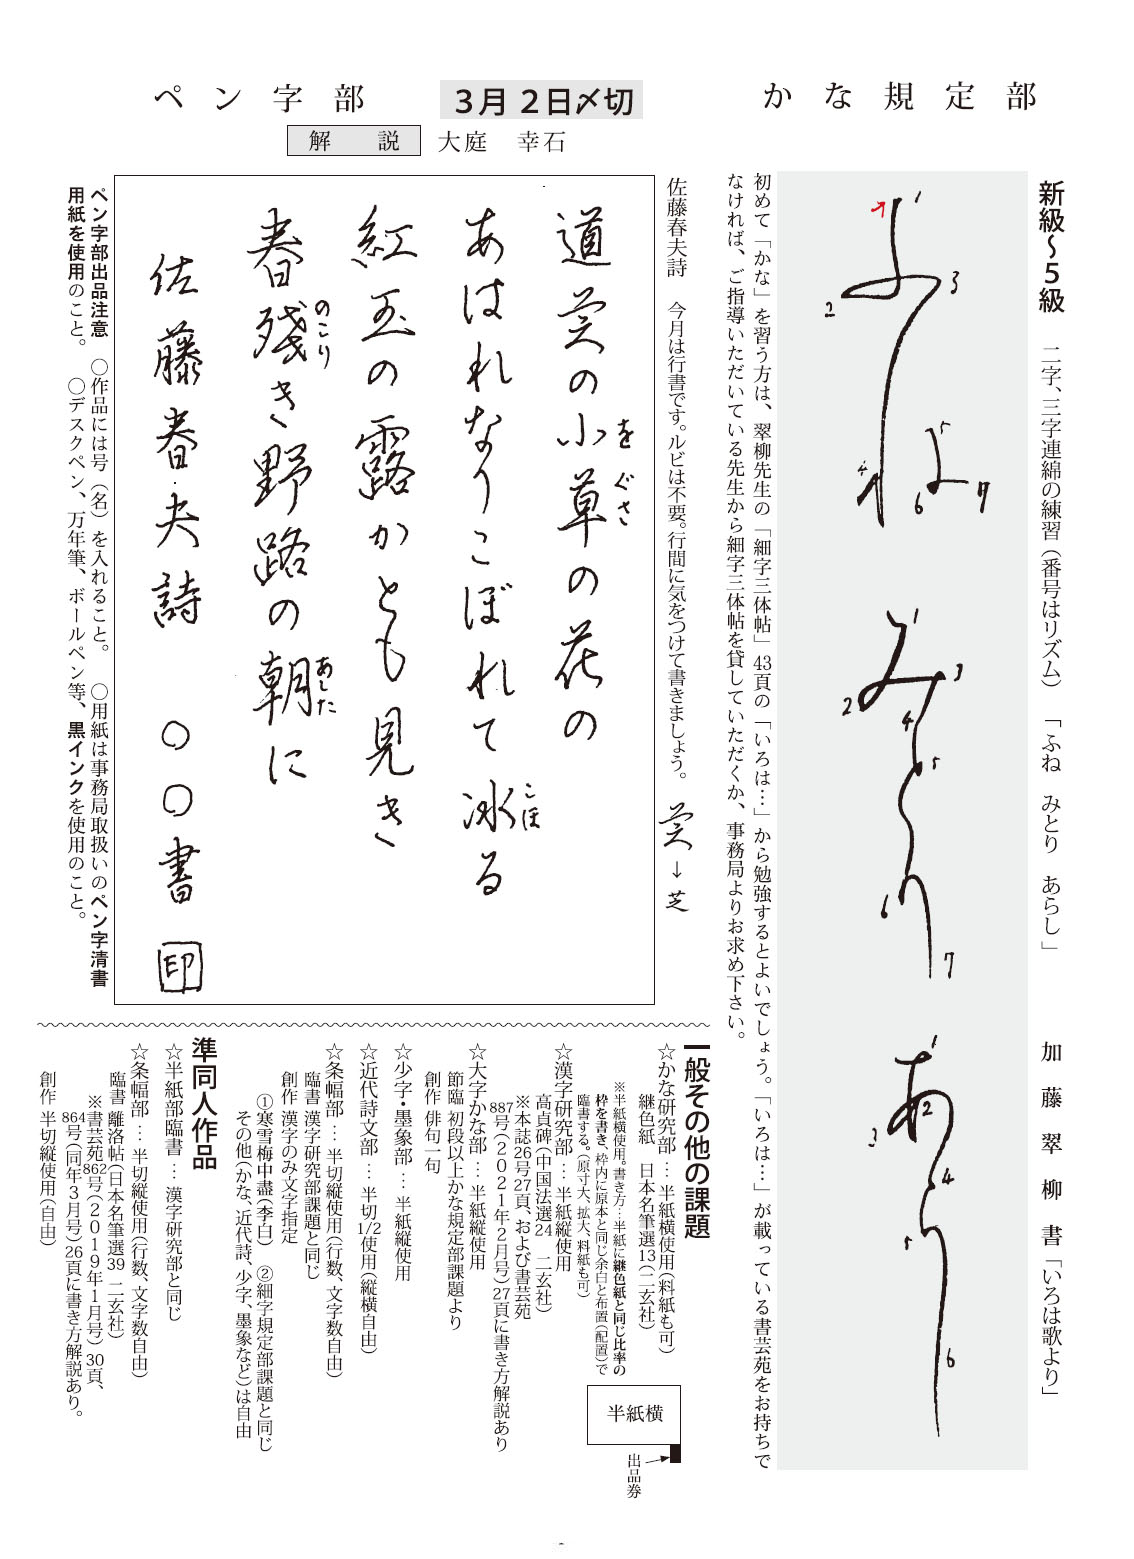 かな規定部
新級～5級　二字、三字連綿の練習（番号はリズム）　「ふね　みとり　あらし」　加藤翠柳書「いろは歌より」
1
2
3
4
5
6
7
ふね
1
2
3
4
5
6
7
みとり
1
2
3
4
5
6
あらし
初めて「かな」を習う方は、翠柳先生の「細字三体帖」43頁の「いろは…」から勉強するとよいでしょう。「いろは…」が載っている書芸苑をお持ちで
なければ、ご指導いただいている先生から細字三体帖を貸していただくか、事務局よりお求め下さい。
3月2日〆切
ペン字部
解説　大庭　幸石
佐藤春夫詩　今月は行書です。ルビは不要。行間に気をつけて書きましょう。　芝→芝
道芝の小草の花の
をぐさ
あはれなりこぼれて氷る
こほ
紅玉の露かとも見き
春残き野路の朝に
のこり
あした
佐藤春夫詩　○○書　印
ペン字部出品注意　○作品には号（名）を入れること。　○用紙は事務局取扱いのペン字清書
用紙を使用のこと。　○デスクペン、万年筆、ボールペン等、黒インクを使用のこと。
一般その他の課題
☆かな研究部…半紙横使用（料紙も可）
継色紙　日本名筆選13（二玄社）
※半紙横使用。書き方…半紙に継色紙と同じ比率の
枠を書き、枠内に原本と同じ余白と布置（配置）で
臨書する。（原寸大、拡大、料紙も可）
半紙横
出品券
☆漢字研究部…半紙縦使用
高貞碑（中国法選24　二玄社）
※本誌26号27頁、および書芸苑
887号（2021年2月号）27頁に書き方解説あり
☆大字かな部…半紙縦使用
節臨 初段以上かな規定部課題より
創作 俳句一句
☆少字・墨象部…半紙縦使用
☆近代詩文部…半切1/2使用（縦横自由）
☆条幅部…半切縦使用（行数、文字数自由）
臨書 漢字研究部課題と同じ
創作 漢字のみ文字指定
①寒雪梅中盡（李白）　②細字規定部課題と同じ
その他（かな、近代詩、少字、墨象など）は自由
準同人作品
☆半紙部臨書…漢字研究部と同じ
☆条幅部…半切縦使用（行数、文字数自由）
臨書 離洛帖（日本名筆選39　二玄社）
※書芸苑862号（2019年1月号）30頁、
864号（同年3月号）26頁に書き方解説あり。
創作 半切縦使用（自由）